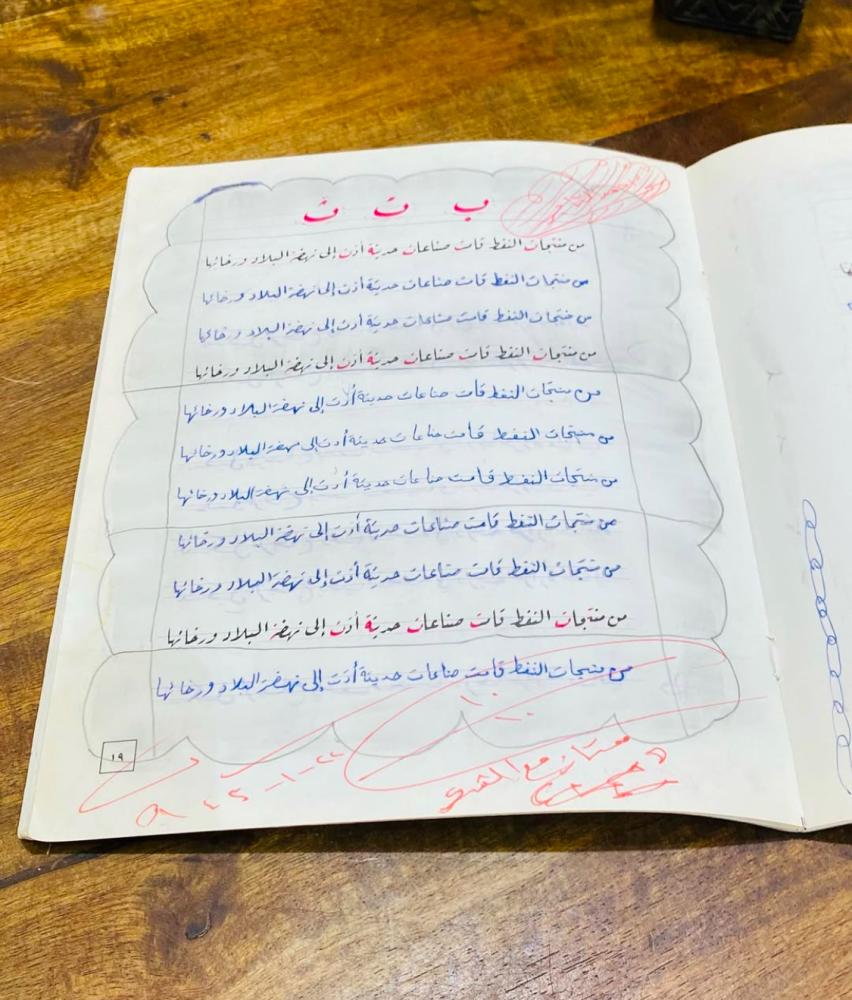 ب ت ث
من منتجات النفط قامت صناعات حديثة أدت إلى نهضة البلاد ورخائها
من منتجات النفط قامت صناعات حديثة أدت إلى نهضة البلاد ورخائها
من منتجات النفط قامت صناعات حديثة أدت إلى نهضة البلاد ورخائها
من منتجات النفط قامت صناعات حديثة أدت إلى نهضة البلاد ورخائها
من منتجات النفط قامت صناعات حديثة أدت إلى نهضة البلاد ورخائها
من منتجات النفط قامت صناعات حديثة أدت إلى نهضة البلاد ورخائها
من منتجات النفط قامت صناعات حديثة أدت إلى نهضة البلاد ورخائها
من منتجات النفط قامت صناعات حديثة أدت إلى نهضة البلاد ورخائها
من منتجات النفط قامت صناعات حديثة أدت إلى نهضة البلاد ورخائها
من منتجات النفط قامت صناعات حديثة أدت إلى نهضة البلاد ورخائها
من منتجات النفط قامت صناعات حديثة أدت إلى نهضة البلاد ورخائها
١٠
١٠
١٩